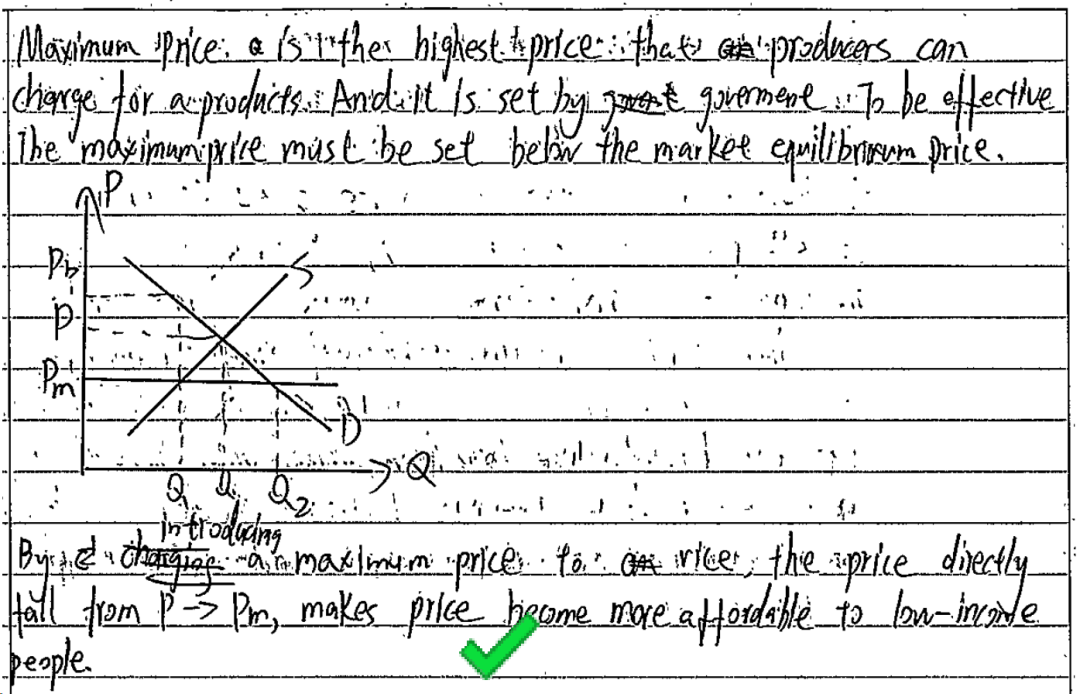 Maximum price. is the highest price that producers can
charge for a products. And it is set by goverment. To be effective
The maximum price must be set below the market equilibrium price.
P
Pb
P
Pm
S
D
Q
Q1 Q Q2
introducing
By a maximum price to rice, the price directly
fall from P → Pm, makes price become more affordable to low-income
people.